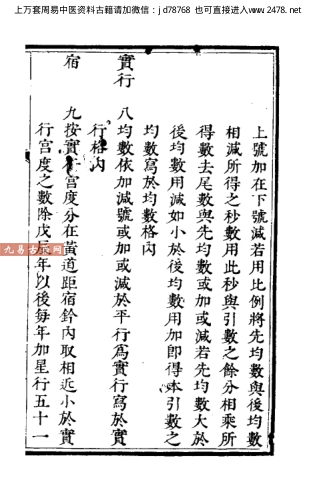 上万套周易中医资料古籍请加微信:jd78768 也可直接进入www.2478.net
上號加在下號減若用比例將先均數與後均數
相減所得之秒數用此秒與引數之餘分相乘所
得數去尾數與先均數或加或減若先均數大於
後均數用減如小於後均數用加即得本引數之
均數寫於均數格內
實行 八均數依加減號或加或減於平行為實行寫於實
行格內
宿 九按實行宮度分在黃道距宿鈐內取相近小於實
行宮度之數除戊辰年以後每年加星行五十一
九易古